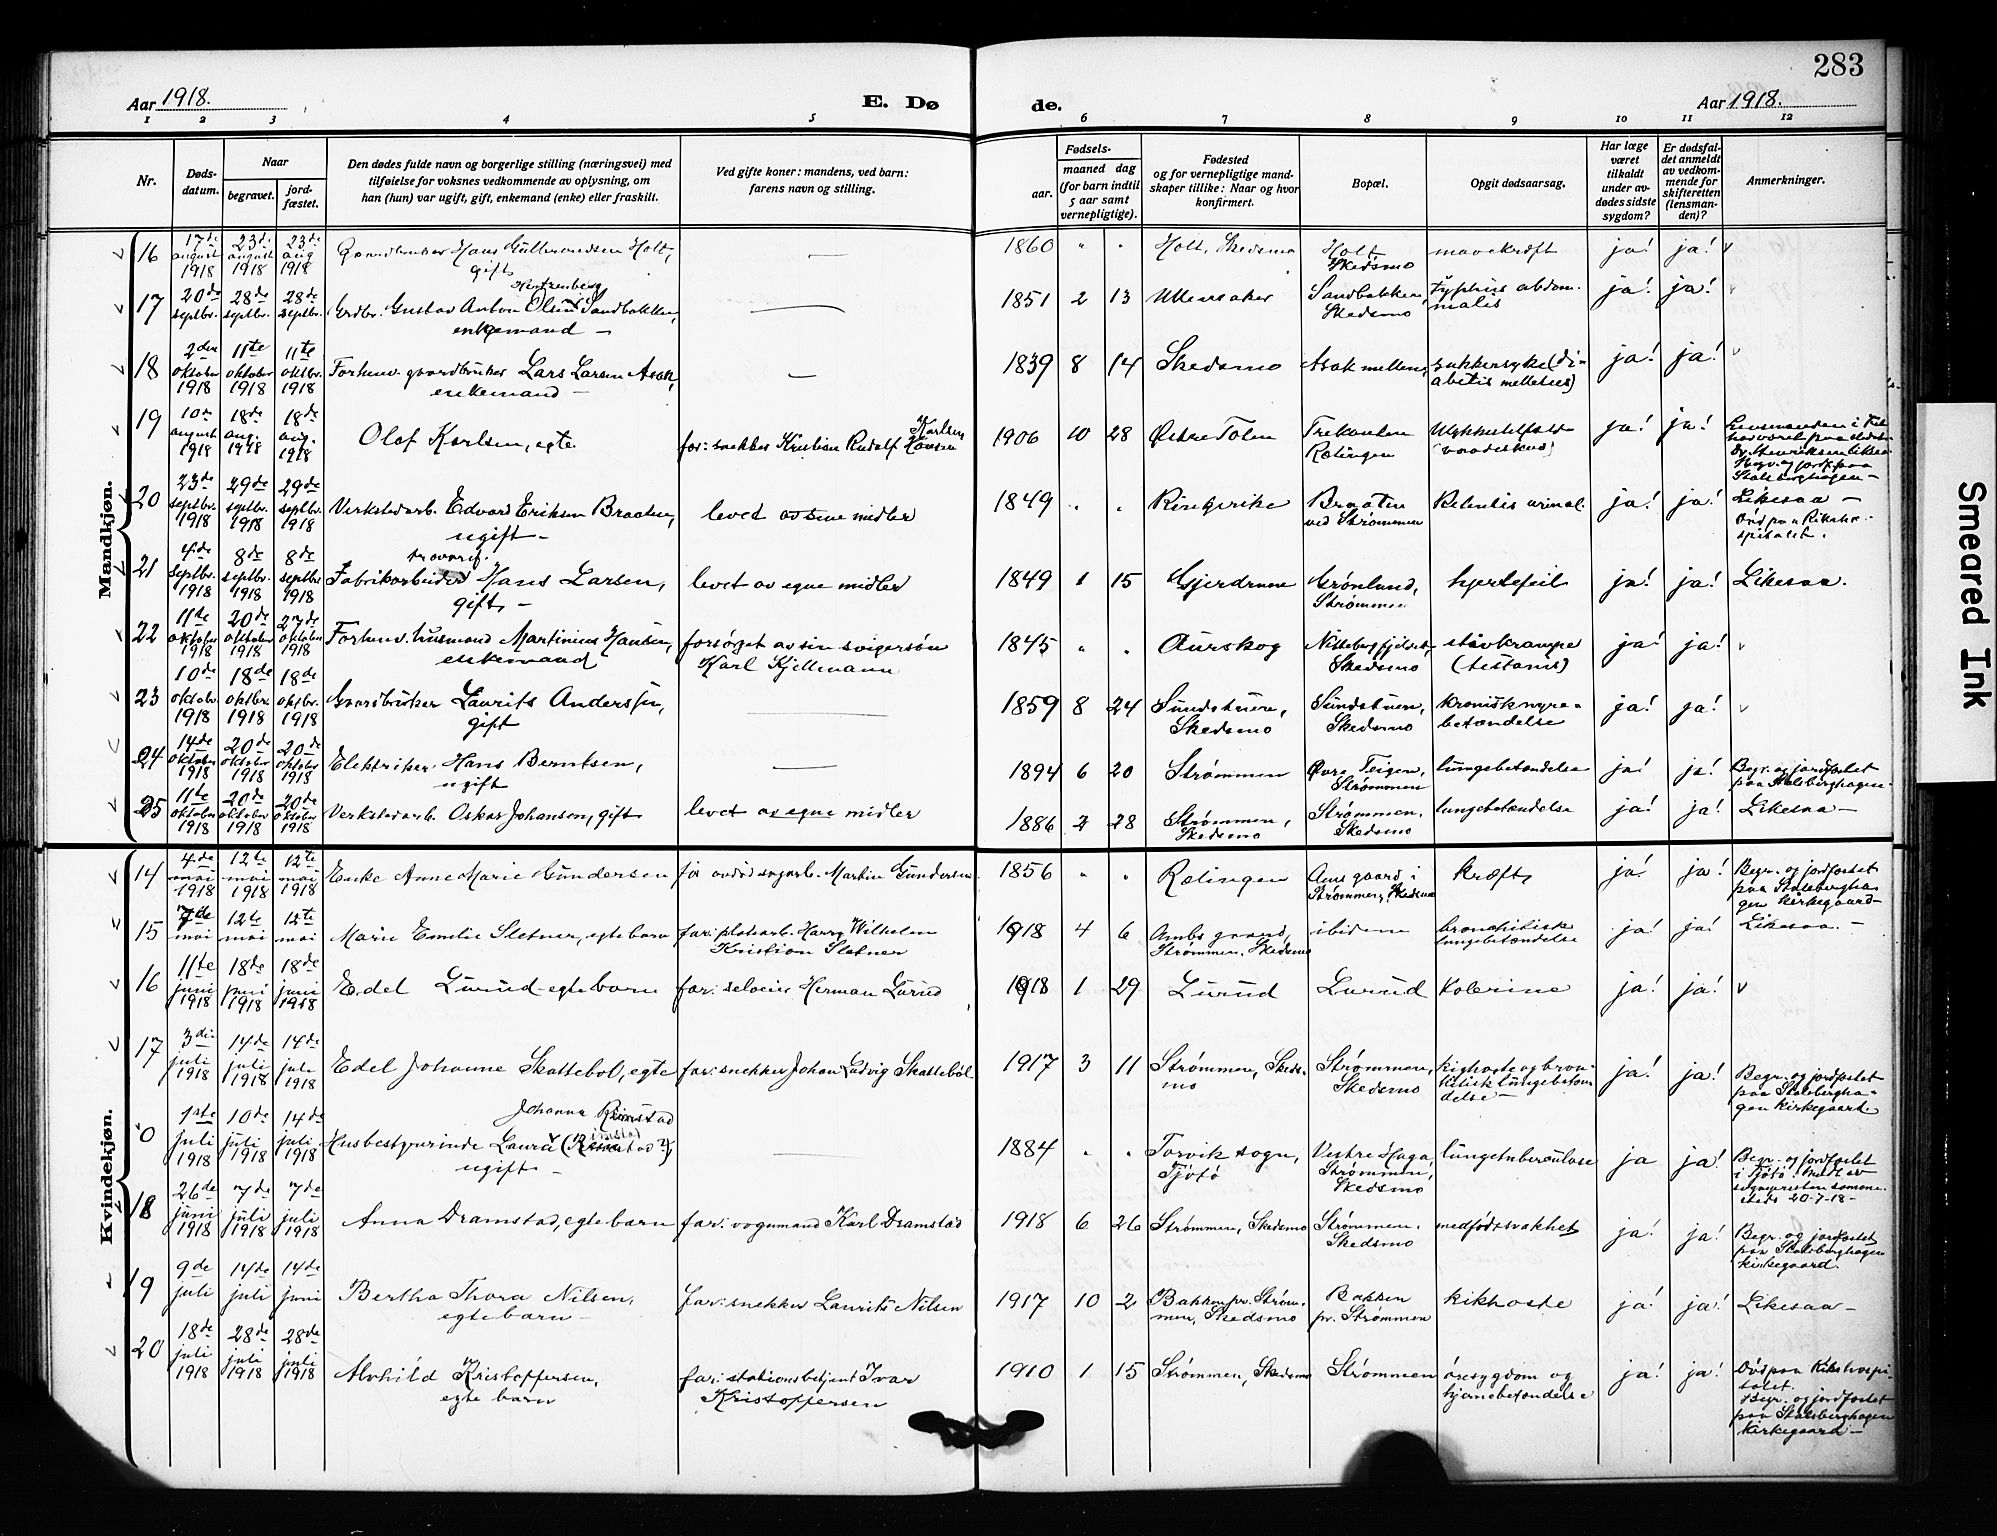 283
Aar 1918.
E. Dø
de.
Aar 1918.
1 2 3 4 5 6 7 8 9 10 11 12
Nr.
Døds-
datum.
Naar
begravet.
jord-
fæstet.
Den dødes fulde navn og borgerlige stilling (næringsvei) med
tilføielse for voksnes vedkommende av oplysning, om
han (hun) var ugift, gift, enkemand (enke) eller fraskilt.
Ved gifte koner: mandens, ved barn:
farens navn og stilling.
Fødsels-
aar.
maaned dag
(for barn indtil
5 aar samt
vernepligtige).
Fødested
og for vernepligtige mand-
skaper tillike: Naar og hvor
konfirmert.
Bopæl.
Opgit dødsaarsag.
Har læge
været
tilkaldt
under av-
dødes sidste
sygdom?
Er dødsfal-
det anmeldt
av vedkom-
mende for
skifteretten
(lensman-
den)?
Anmerkninger.
Mandkjøn.
16 17de august 1918 23de august 1918 23de aug 1918 Gaardbruker Hans Gulbrandsen Holt, gift — 1860 " " Holt, Skedsmo Holt Skedsmo mavekræft ja! ja!
17 20de septbr. 1918 28de septbr. 28de septbr. Grdbr. Gustav Anton Olsen Sandbakken, enkemand — 1851 2 13 Ullensaker Sandbakken, Skedsmo Typhus abdom- malis ja! ja!
18 2den oktober 1918 11te oktober 1918 11te oktbr. 1918 Forhenv. gaardbruker Lars Larsen Asak, enkemand — 1839 8 14 Skedsmo Asak mellem, sukkersyke (di- abetis mellitus) ja! ja!
19 10de august 1918 18de aug. 1918 18de aug. 1918 Olaf Karlsen, egte far: snekker Kristian Rudolf Hansen Karlsen 1906 10 28 Østre Toten Trekanten Rælingen Ulykkestilfælde (vaadeskud) ja! ja! Begr. og jordf. paa Stalsberghagen —
20 23de septbr. 1918 29de septbr. 1918 29de septbr. 1918 Verkstedarb. Edvard Eriksen Braaten, ugift — levet av sine midler 1849 " " Ringerike Braaten ved Strømmen Retentis urinal. ja! ja! Likesaa — Død paa Rikshospitalet.
21 4de septbr. 1918 8de septbr. 1918 8de septbr. 1918 Fabrikarbeider Hans Larsen, gift — levet av egne midler 1849 1 15 Gjerdrum Grønlund, Strømmen hjertefeil ja! ja! Likesaa.
22 11te oktober 1918 20de oktober 1918 27de oktober 1918 Forhenv. husmand Martinius Hansen, enkemand forsørget av sin svigersøn Karl Kjellmann 1845 " " Aurskog Skedsmo stivkrampe (testanis) ja! ja!
23 10de oktober 1918 18de oktbr. 1918 18de oktbr. 1918 Gaardbruker Laurits Anderssen, gift — 1859 8 24 Sundstuen, Skedsmo Sundstuen, Skedsmo kronisk nyre- betændelse ja! ja!
24 14de oktober 1918 20de oktober 1918 20de oktober 1918 Elektriker Hans Berntsen, ugift — 1894 6 20 Strømmen Øvre Teigen, Strømmen lungebetændelse ja! ja! Begr. og jordfæstet paa Stalsberghagen.
25 11te oktober 1918 20de oktober 1918 20de oktober 1918 Verkstedarb. Oskar Johansen, gift levet av egne midler 1886 2 28 Strømmen, Skedsmo Strømmen. Skedsmo lungebetændelse ja! ja! Likesaa —
Kvindekjøn.
14 4de mai 1918 12te mai 1918 12te mai 1918 Enke Anne Marie Gundersen for avdød sagarb. Martin Gundersen 1856 " " Rælingen Aasgaard i Strømmen, Skedsmo kræft ja! ja! Begr. og jordfæstet paa Stalsbergha- gen kirkegaard —
15 7de mai 12te mai 12te mai Marie Emilie Sletner, egte barn far: platearb. Harry Wilhelm Kristian Sletner 1918 4 6 Strømmen, Skedsmo ibidem bronchitisk lungebetændelse ja! ja! Likesaa. —
16 11te juni 1918 18de juni 1918 18de juni 1918 Edel Lurud egte barn far: seleier Herman Lurud 1918 1 29 Lurud Lurud Kolerine ja! ja!
17 3die juli 1918 14de juli 1918 14de juli 1918 Edel Johanne Skattebøl, egte far: snekker Johan Ludvig Skattebøl 1917 3 11 Strømmen, Skeds- mo Strømmen, Skedsmo kighoste og bron- kitisk lungebetæn- delse — ja! ja! Begr. og jordfæstet paa Stalsbergha- gen kirkegaard.
0 1ste juli 1918 10de juli 1918 14de juli 1918 Husbestyrerinde Laura Johanna Reinstad ugift — — 1884 " " Torvik sogn, Tjøtø Vestre Haga, Strømmen, Skedsmo lungetuberculose ja ja! Begr. og jordfæstet i Tjøtø. Meldt av sognepresten samme- steds 20-7-18 —
18 26de juni 1918 7de juli 1918 7de juli 1918 Anna Dramstad, egte barn far: vognmand Karl Dramstad 1918 6 26 Strømmen, Skedsmo Strømmen. Skedsmo medfødt svakhet ja! ja! Begr. og jordfæstet paa Stalsberghagen kirkegaard.
19 9de juli 14de juli 14de juni Bertha Thora Nilsen, egte barn — far: snekker Laurits Nilsen 1917 10 2 Bakken pr. Strøm- men, Skedsmo Bakken pr. Strømmen kikhoste ja! ja! Likesaa —
20 18de juli 1918 28de juli 1918 28de juli 1918 Alvhild Kristoffersen, egte barn far: stationsbetjent Ivar Kristoffersen 1910 1 15 Strømmen, Skedsmo Strømmen øresygdom og hjernebetændelse ja! ja! Død paa Rikshospi- talet. Begr. og jordfæstet paa Stalsberghagen kirkegaard —
Smeared Ink